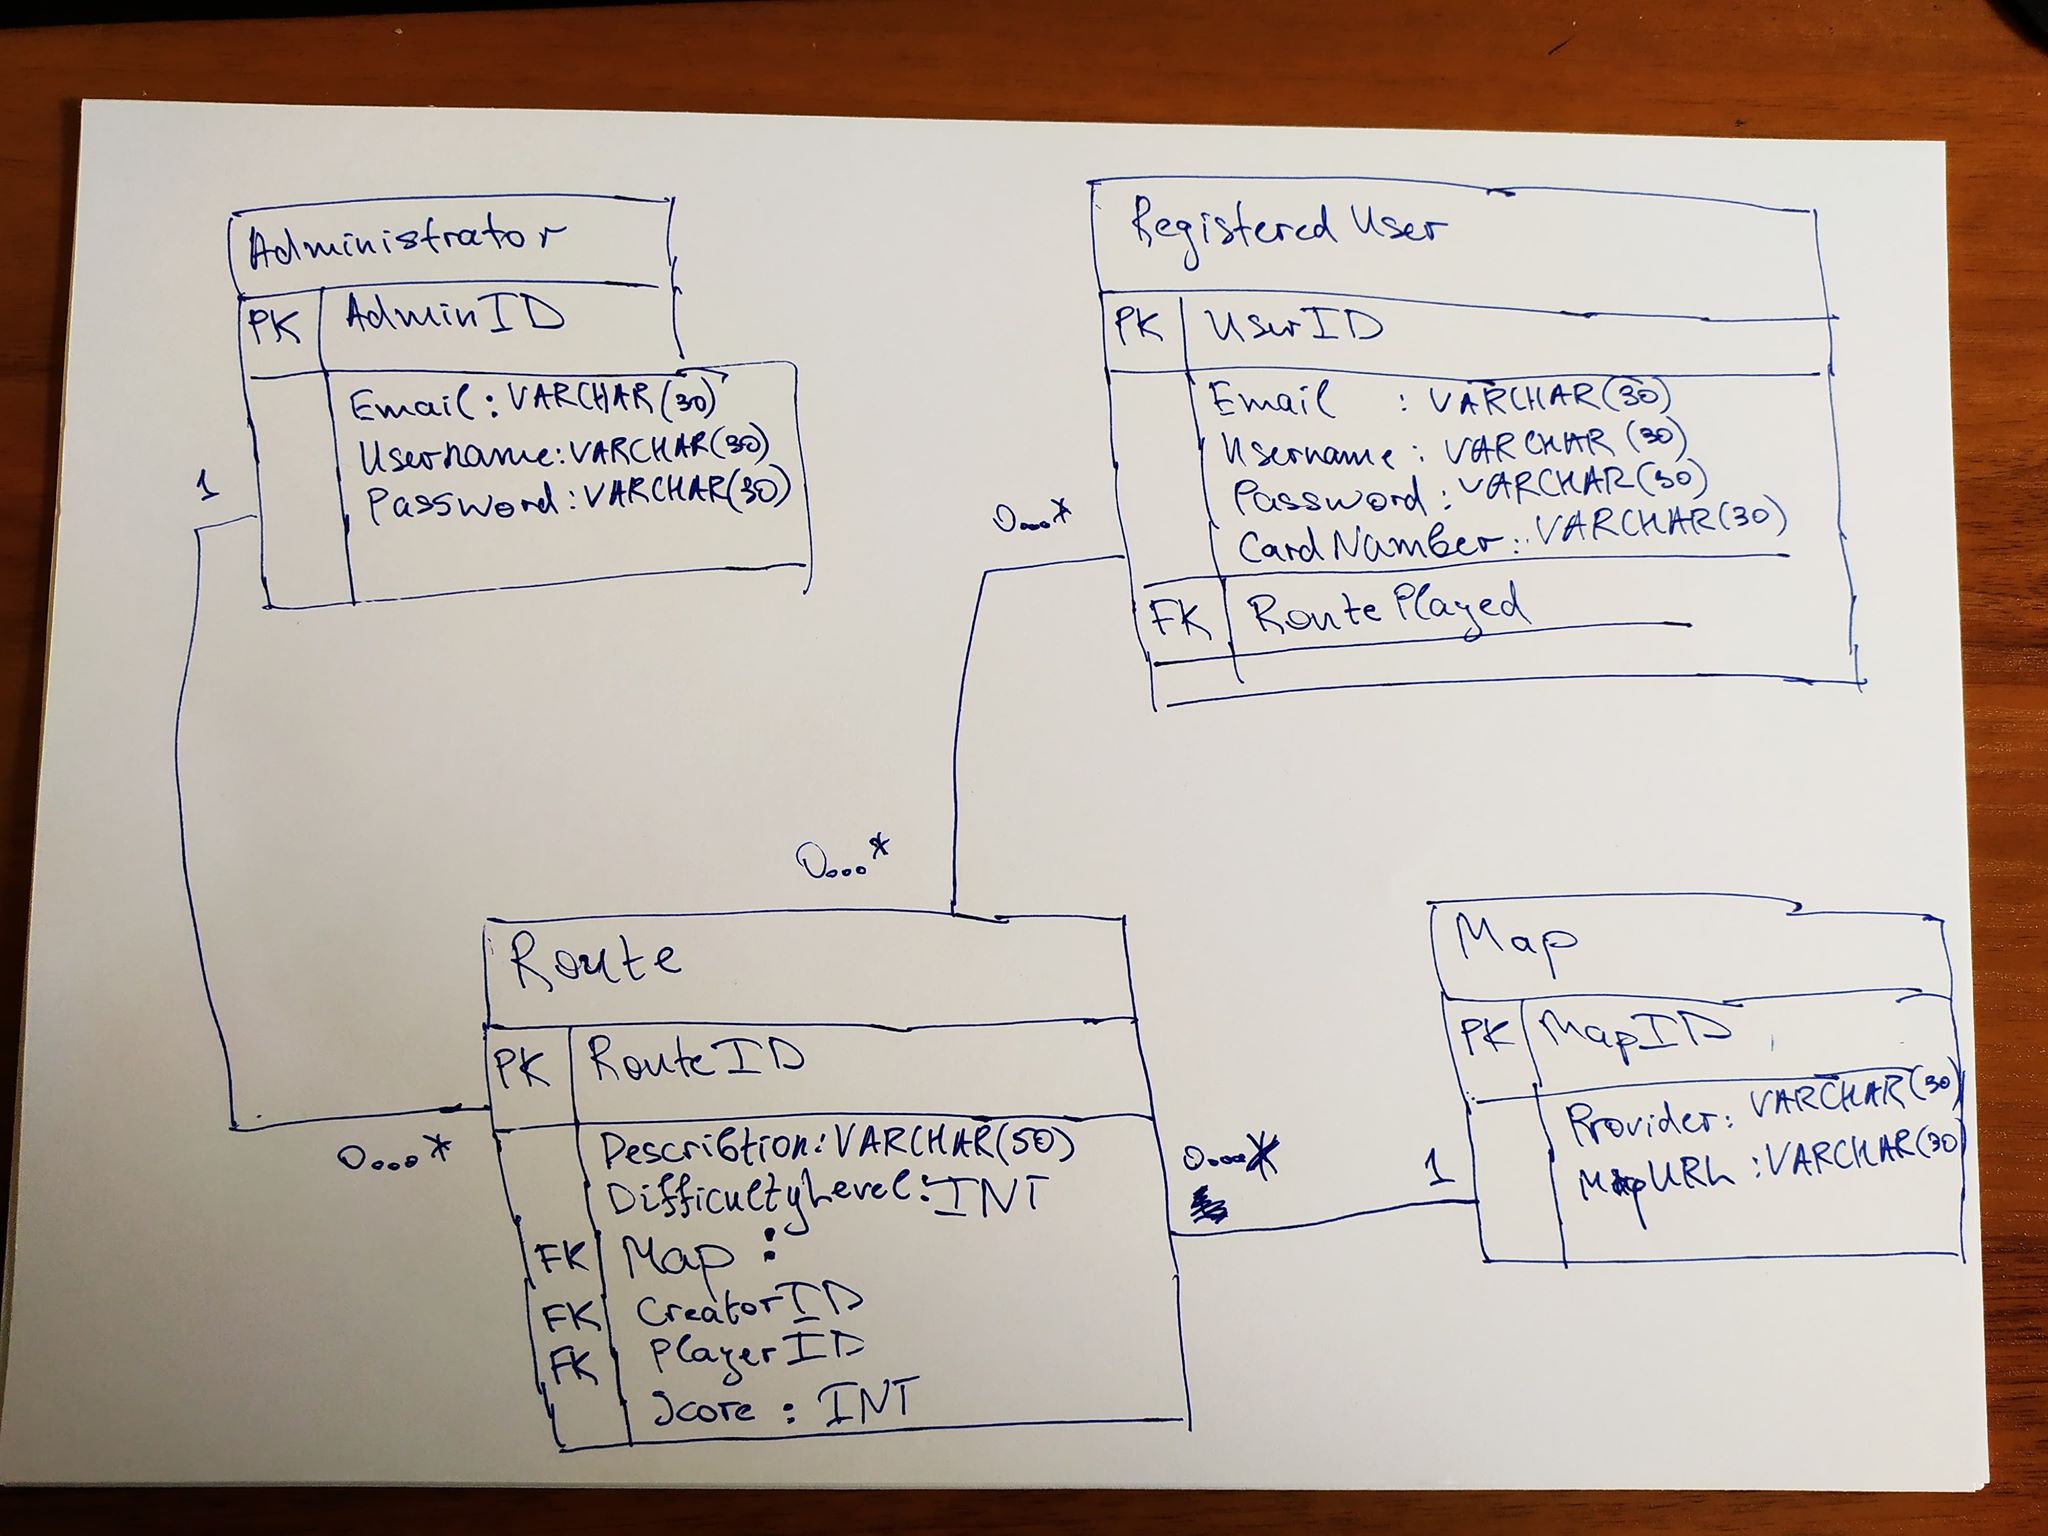 Administrator
PK AdminID
Email: VARCHAR(30)
Username: VARCHAR(30)
Password: VARCHAR(30)
1
0...*
Registered User
PK UserID
Email : VARCHAR(30)
Username: VARCHAR(30)
Password: VARCHAR(30)
CardNumber: VARCHAR(30)
FK RoutePlayed
0...*
0...*
Route
PK RouteID
Describtion: VARCHAR(50)
DifficultyLevel: INT
FK Map :
FK CreatorID
FK PlayerID
Score : INT
0...*
1
Map
PK MapID
Provider: VARCHAR(30)
MapURL : VARCHAR(30)